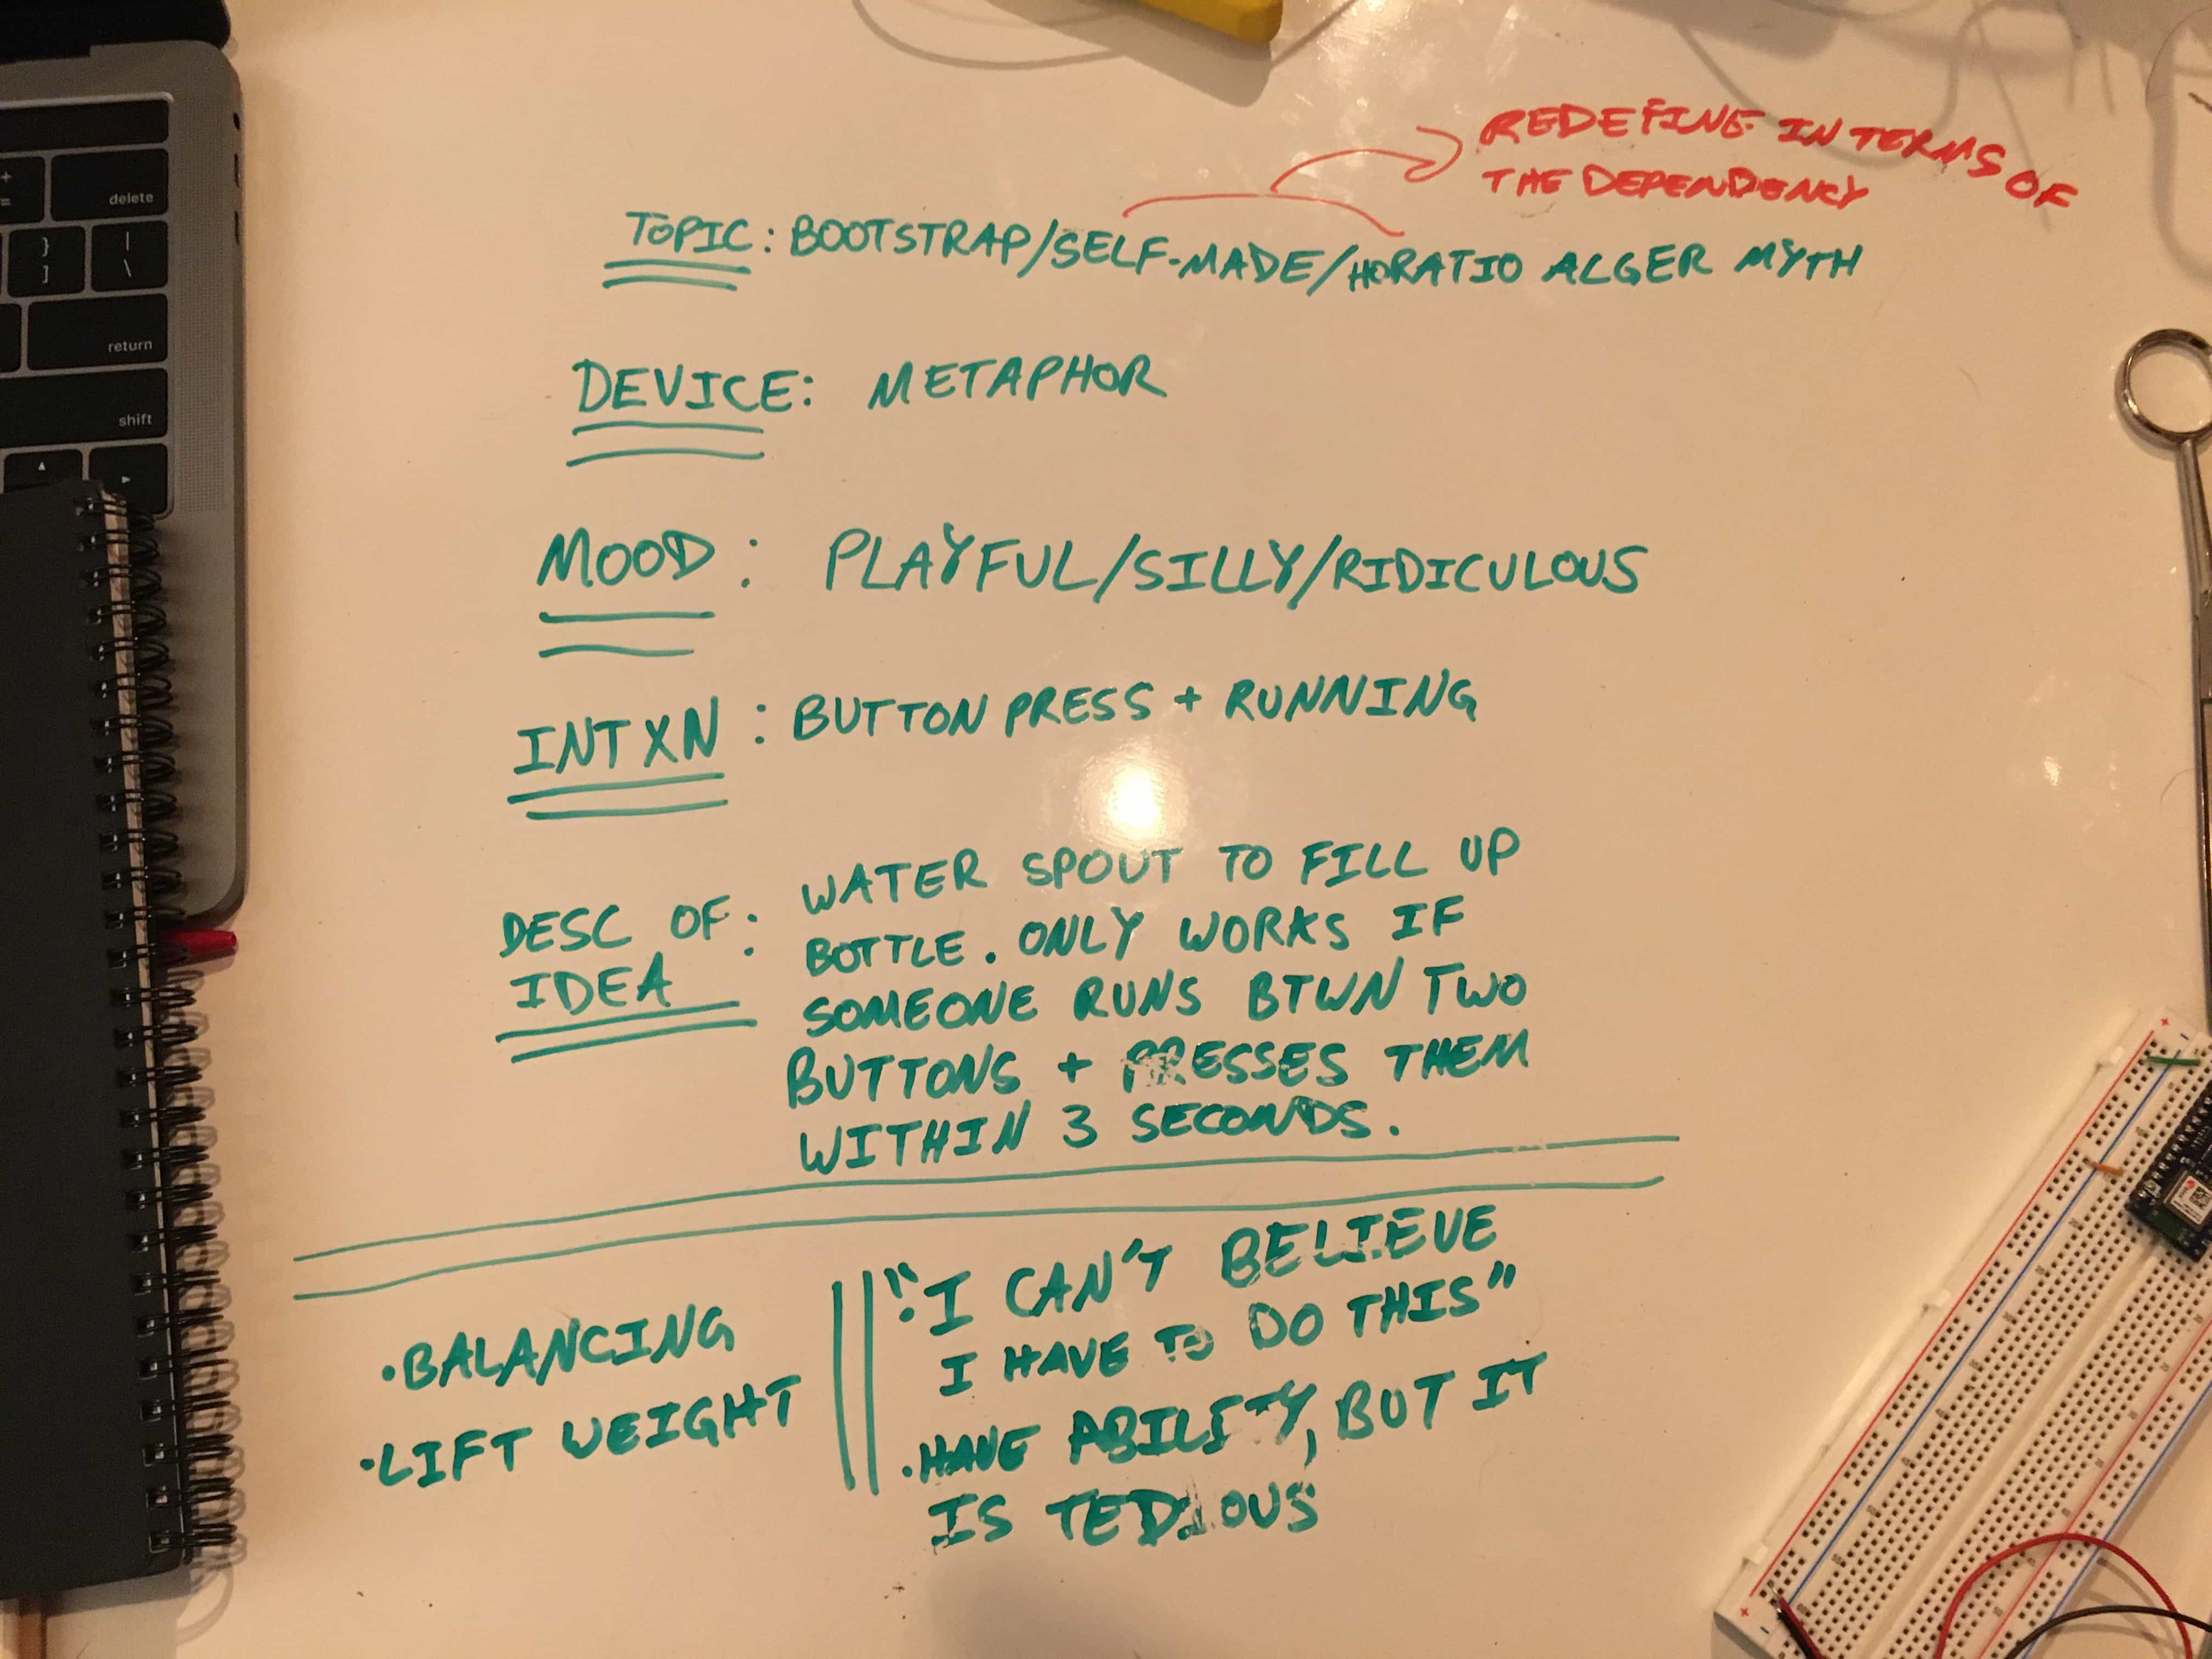 REDEFINE IN TERMS OF
THE DEPENDENCY
TOPIC: BOOTSTRAP/SELF-MADE/HORATIO ALGER MYTH
DEVICE: METAPHOR
MOOD: PLAYFUL/SILLY/RIDICULOUS
INTXN: BUTTON PRESS + RUNNING
DESC OF IDEA:
WATER SPOUT TO FILL UP
BOTTLE. ONLY WORKS IF
SOMEONE RUNS BTWN TWO
BUTTONS + PRESSES THEM
WITHIN 3 SECONDS.
·BALANCING
·LIFT WEIGHT
·"I CAN'T BELIEVE
I HAVE TO DO THIS"
·HAVE ABILITY, BUT IT
IS TEDIOUS
+
=
delete
}
]
|
\
return
shift